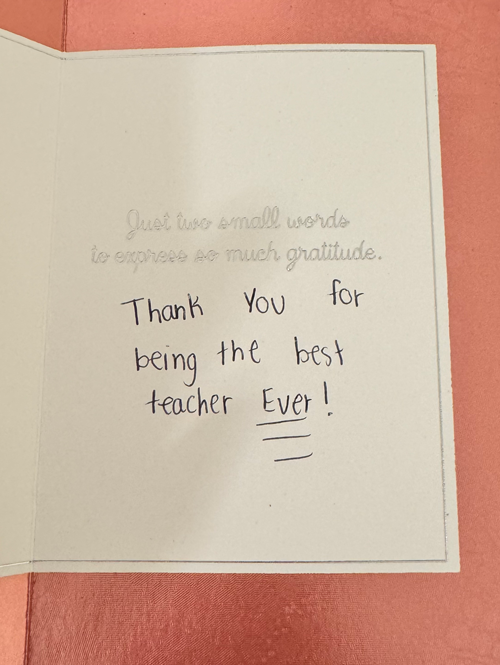 Just two small words
to express so much gratitude.
Thank You for
being the best
teacher Ever!